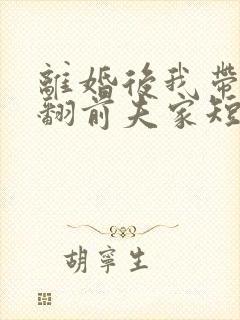 離婚後我帶
翻前夫家短
胡寧生